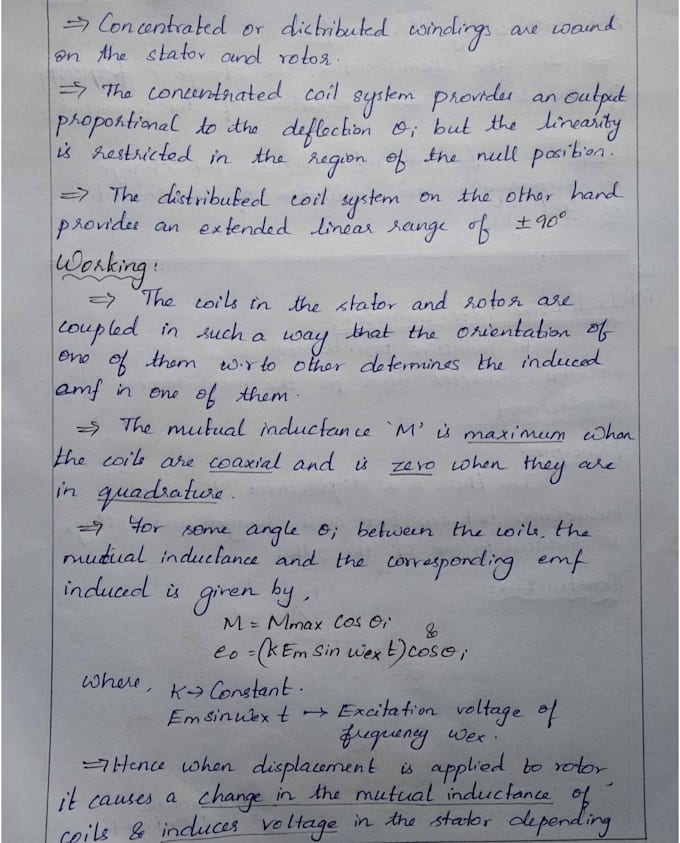 ⇒ Concentrated or distributed windings are wound
on the stator and rotor.
⇒ The concentrated coil system provides an output
proportional to the deflection θi but the linearity
is restricted in the region of the null position.
⇒ The distributed coil system on the other hand
provides an extended linear range of ±90°
Working:
⇒ The coils in the stator and rotor are
coupled in such a way that the orientation of
one of them w.r to other determines the induced
emf in one of them.
⇒ The mutual inductance 'M' is maximum when
the coils are coaxial and is zero when they are
in quadrature.
⇒ For some angle θi between the coils, the
mutual inductance and the corresponding emf
induced is given by,
M = Mmax cos θi
&
eo = (K Em sin wex t) cos θi
where, K → Constant.
Em sin wex t → Excitation voltage of
frequency wex.
⇒ Hence when displacement is applied to rotor
it causes a change in the mutual inductance of
coils & induces voltage in the stator depending